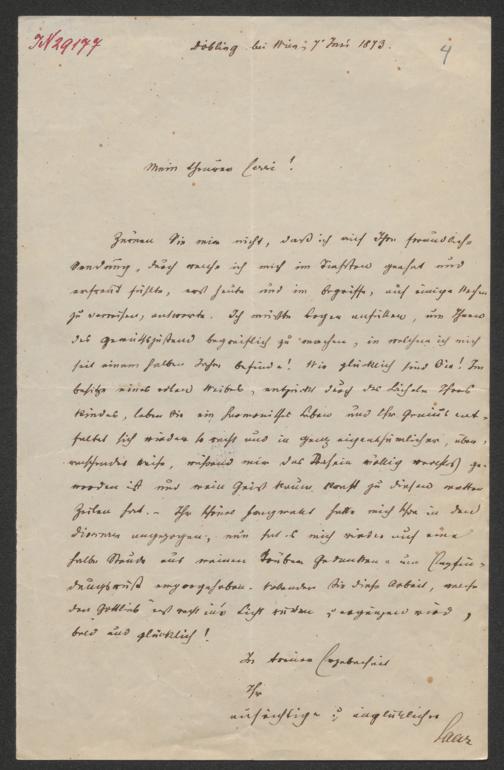 IN 29177
Döbling bei Wien; 7t Juni 1873.
4
Mein theurer Cerri!
Zürnen Sie mir nicht, daß ich auf Ihre freundliche
Sendung, durch welche ich mich im Tiefsten geehrt und
erfreut fühlte, erst heute und im Begriffe, auf einige Wochen
zu verreisen, antworte. Ich müßte Bogen anfüllen, um Ihnen
den Gemüthszustand begreiflich zu machen, in welchem ich mich
seit einem halben Jahre befinde! Wie glücklich sind Sie! Im
Besitze eines edlen Weibes, entzückt durch das Lächeln Ihres
Kindes, leben Sie ein harmonisches Leben und Ihr Genius ent-
faltet sich wieder so recht und in ganz eigenthümlicher, über-
raschender Weise, während mir das Dasein völlig werthlos ge-
worden ist und mein Geist kaum Kraft zu diesen matten
Zeilen hat. - Ihr
angezogen, nun hat es mich wieder auf eine
halbe Stunde aus meinen trüben Gedanken u Empfin-
dungswust emporgehoben. Vollenden Sie diese Arbeit, welche
den Gottlieb erst recht in's Licht rücken u ergänzen wird,
bald und glücklich!
In treuer Ergebenheit
Ihr
aufrichtiger u unglücklicher
Saar